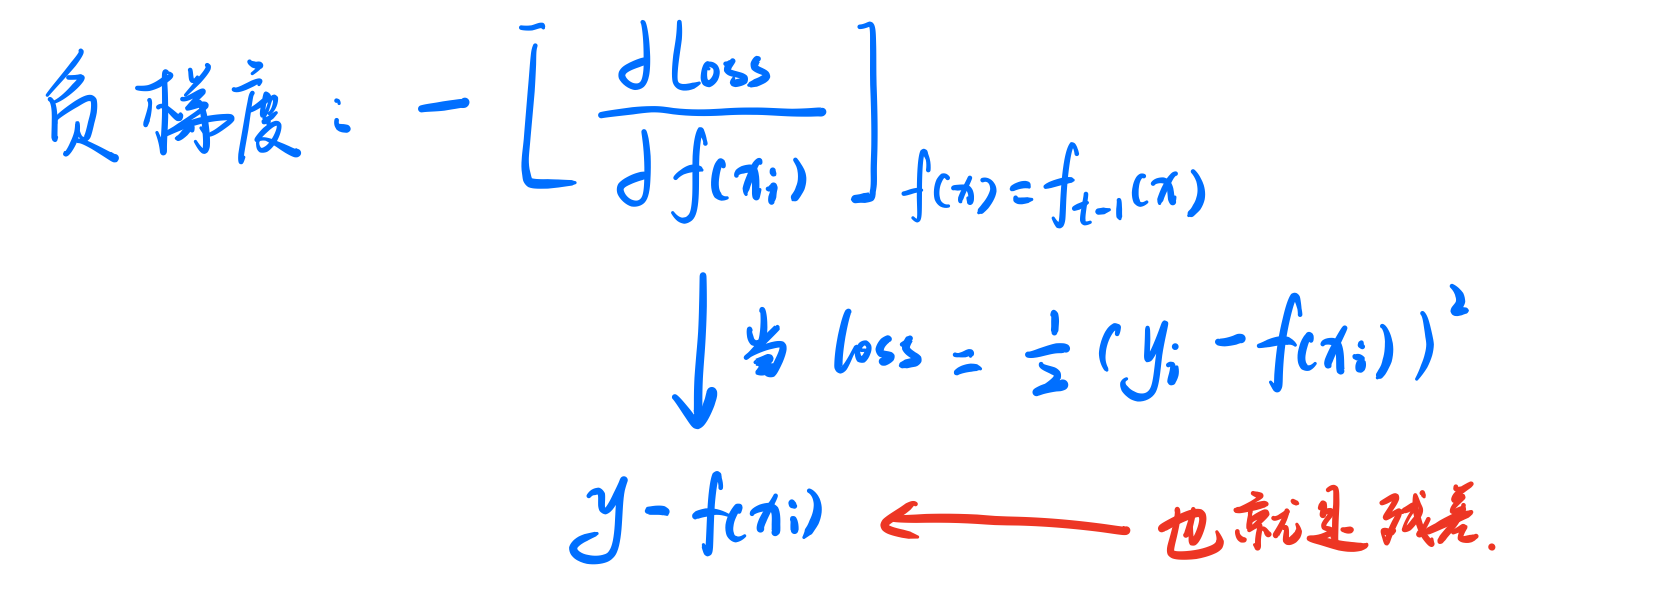 负梯度: -[dLoss/df(xi)]f(x)=ft-1(x)
当 loss = 1/2(yi-f(xi))²
y-f(xi) ← 也就是残差.